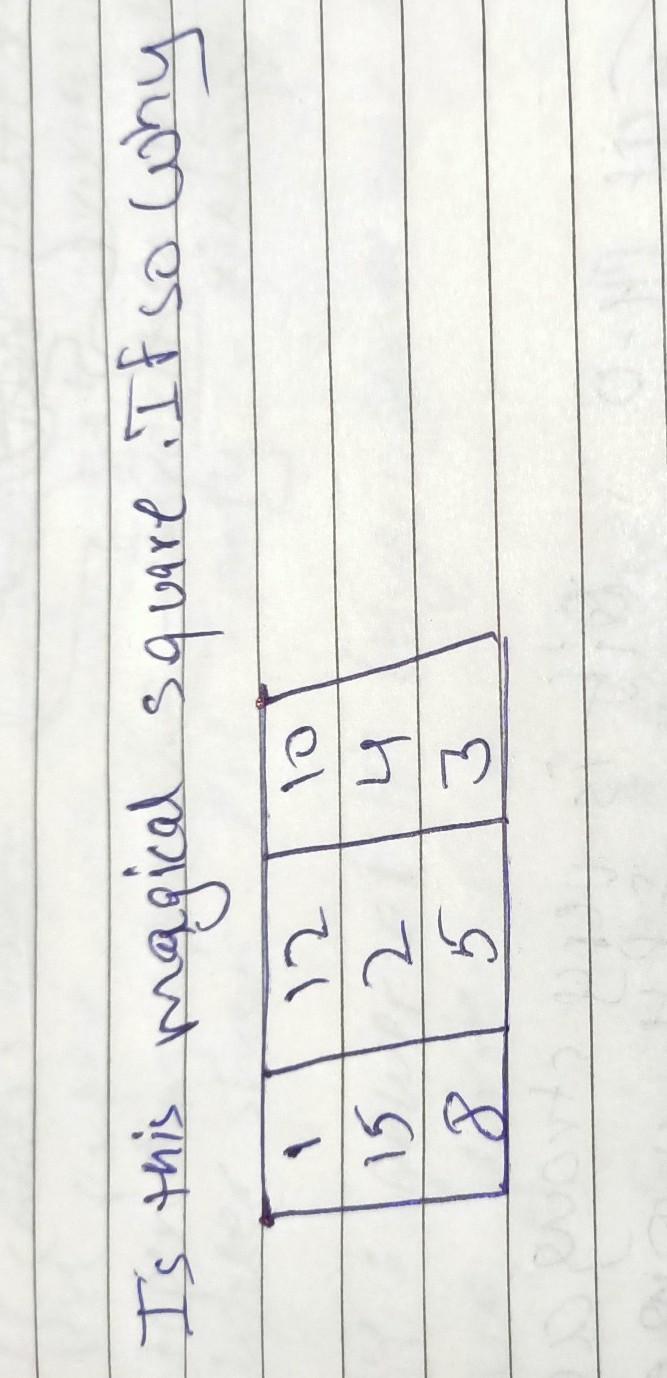 Is this magical square. If so why
1 12 10
15 2 4
8 5 3